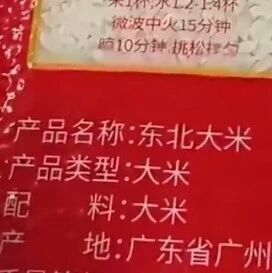 米1杯,水1.2-1.4杯
微波中火15分钟
焖10分钟,挑松拌匀
产品名称:东北大米
产品类型:大米
配 料:大米
产 地:广东省广州
质量等级